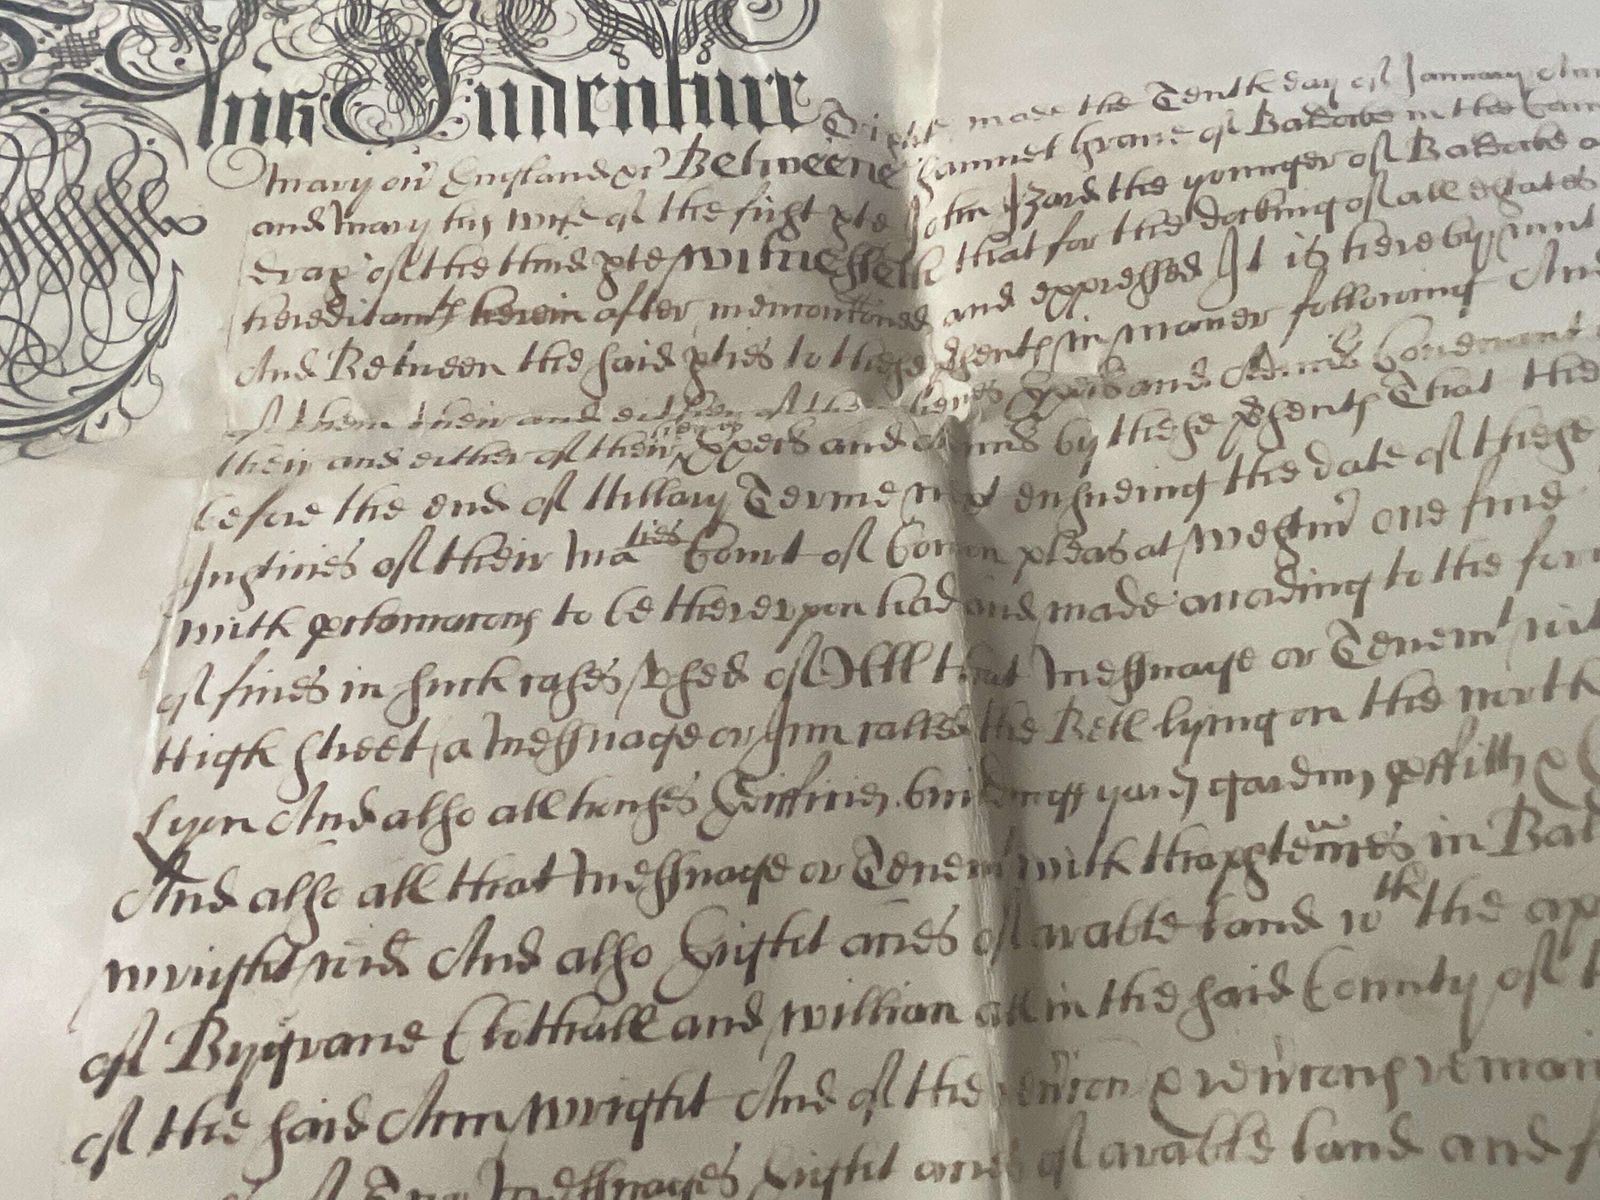 This Indenture Tripte made the Tenth day of January Ann
Mary ou England &c Betweene Sammel Grave of Baldocke in the Coun
and Mary his wife of the first pte John Izard the younger of Baldocke a
drap of the third pte Witnesseth that for the docking of all estates
hereditamts herein after mentconed and expressed It is hereby
And Between the said pties to these psents in maner following And
of them their and either of their heires Exors and Admrs Covenant
their and either of their heires Exxers and Admrs by these psents That the
before the end of Hillary Terme next ensueing the date of these
Justices of their Maties Court of Comon pleas at Westmr one fine
with proclamacons to be thereupon had and made according to the for
of fines in such cases used of All that Messuage or Tenemt
High Street a Messuage or Inn called the Bell lying on the north
Lyon And also all houses Edifficies buildings yards gardens &
And also all that Messuage or Tenemt with thapptences in Bal
Wright And also Eight acres of arable land wth the ap
of Bygrave Clothall and Willian all in the said County of
of the said Ann Wright And of the revercon & revercons remain
Messuages Eight acres of arable land and